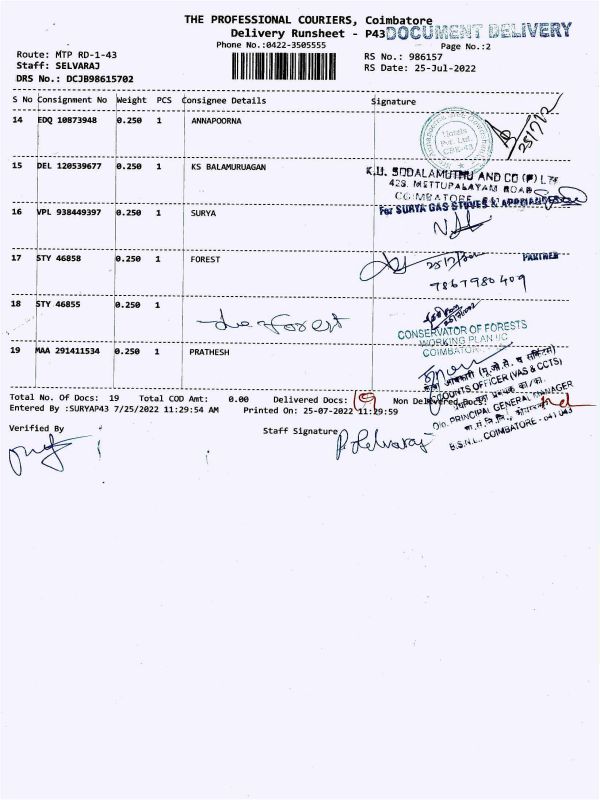 THE PROFESSIONAL COURIERS, Coimbatore
Delivery Runsheet - P43
DOCUMENT DELIVERY
Phone No.:0422-3505555
Page No.:2
Route: MTP RD-1-43
RS No.: 986157
Staff: SELVARAJ
RS Date: 25-Jul-2022
DRS No.: DCJB98615702
S No Consignment No Weight PCS Consignee Details Signature
14 EDQ 10873948 0.250 1 ANNAPOORNA
Hotels
Pvt. Ltd.
CBE-43
15 DEL 120539677 0.250 1 KS BALAMURUAGAN
K.U. SODALAMUTHU AND CO (P) LTD
428, METTUPALAYAM ROAD
COIMBATORE
16 VPL 938449397 0.250 1 SURYA
For SURYA GAS STOVES & APPLIANCES
17 STY 46858 0.250 1 FOREST
PARTNER
7867980409
18 STY 46855 0.250 1
forest
CONSERVATOR OF FORESTS
WORKING PLAN
COIMBATORE
19 MAA 291411534 0.250 1 PRATHESH
ACCOUNTS OFFICER (VAS & CCTS)
O/o. PRINCIPAL GENERAL MANAGER
B.S.N.L., COIMBATORE - 641 043
Total No. Of Docs: 19 Total COD Amt: 0.00 Delivered Docs: 19 Non Delivered Docs:
Entered By :SURYAP43 7/25/2022 11:29:54 AM Printed On: 25-07-2022 11:29:59
Verified By
Staff Signature
P. Selvaraj